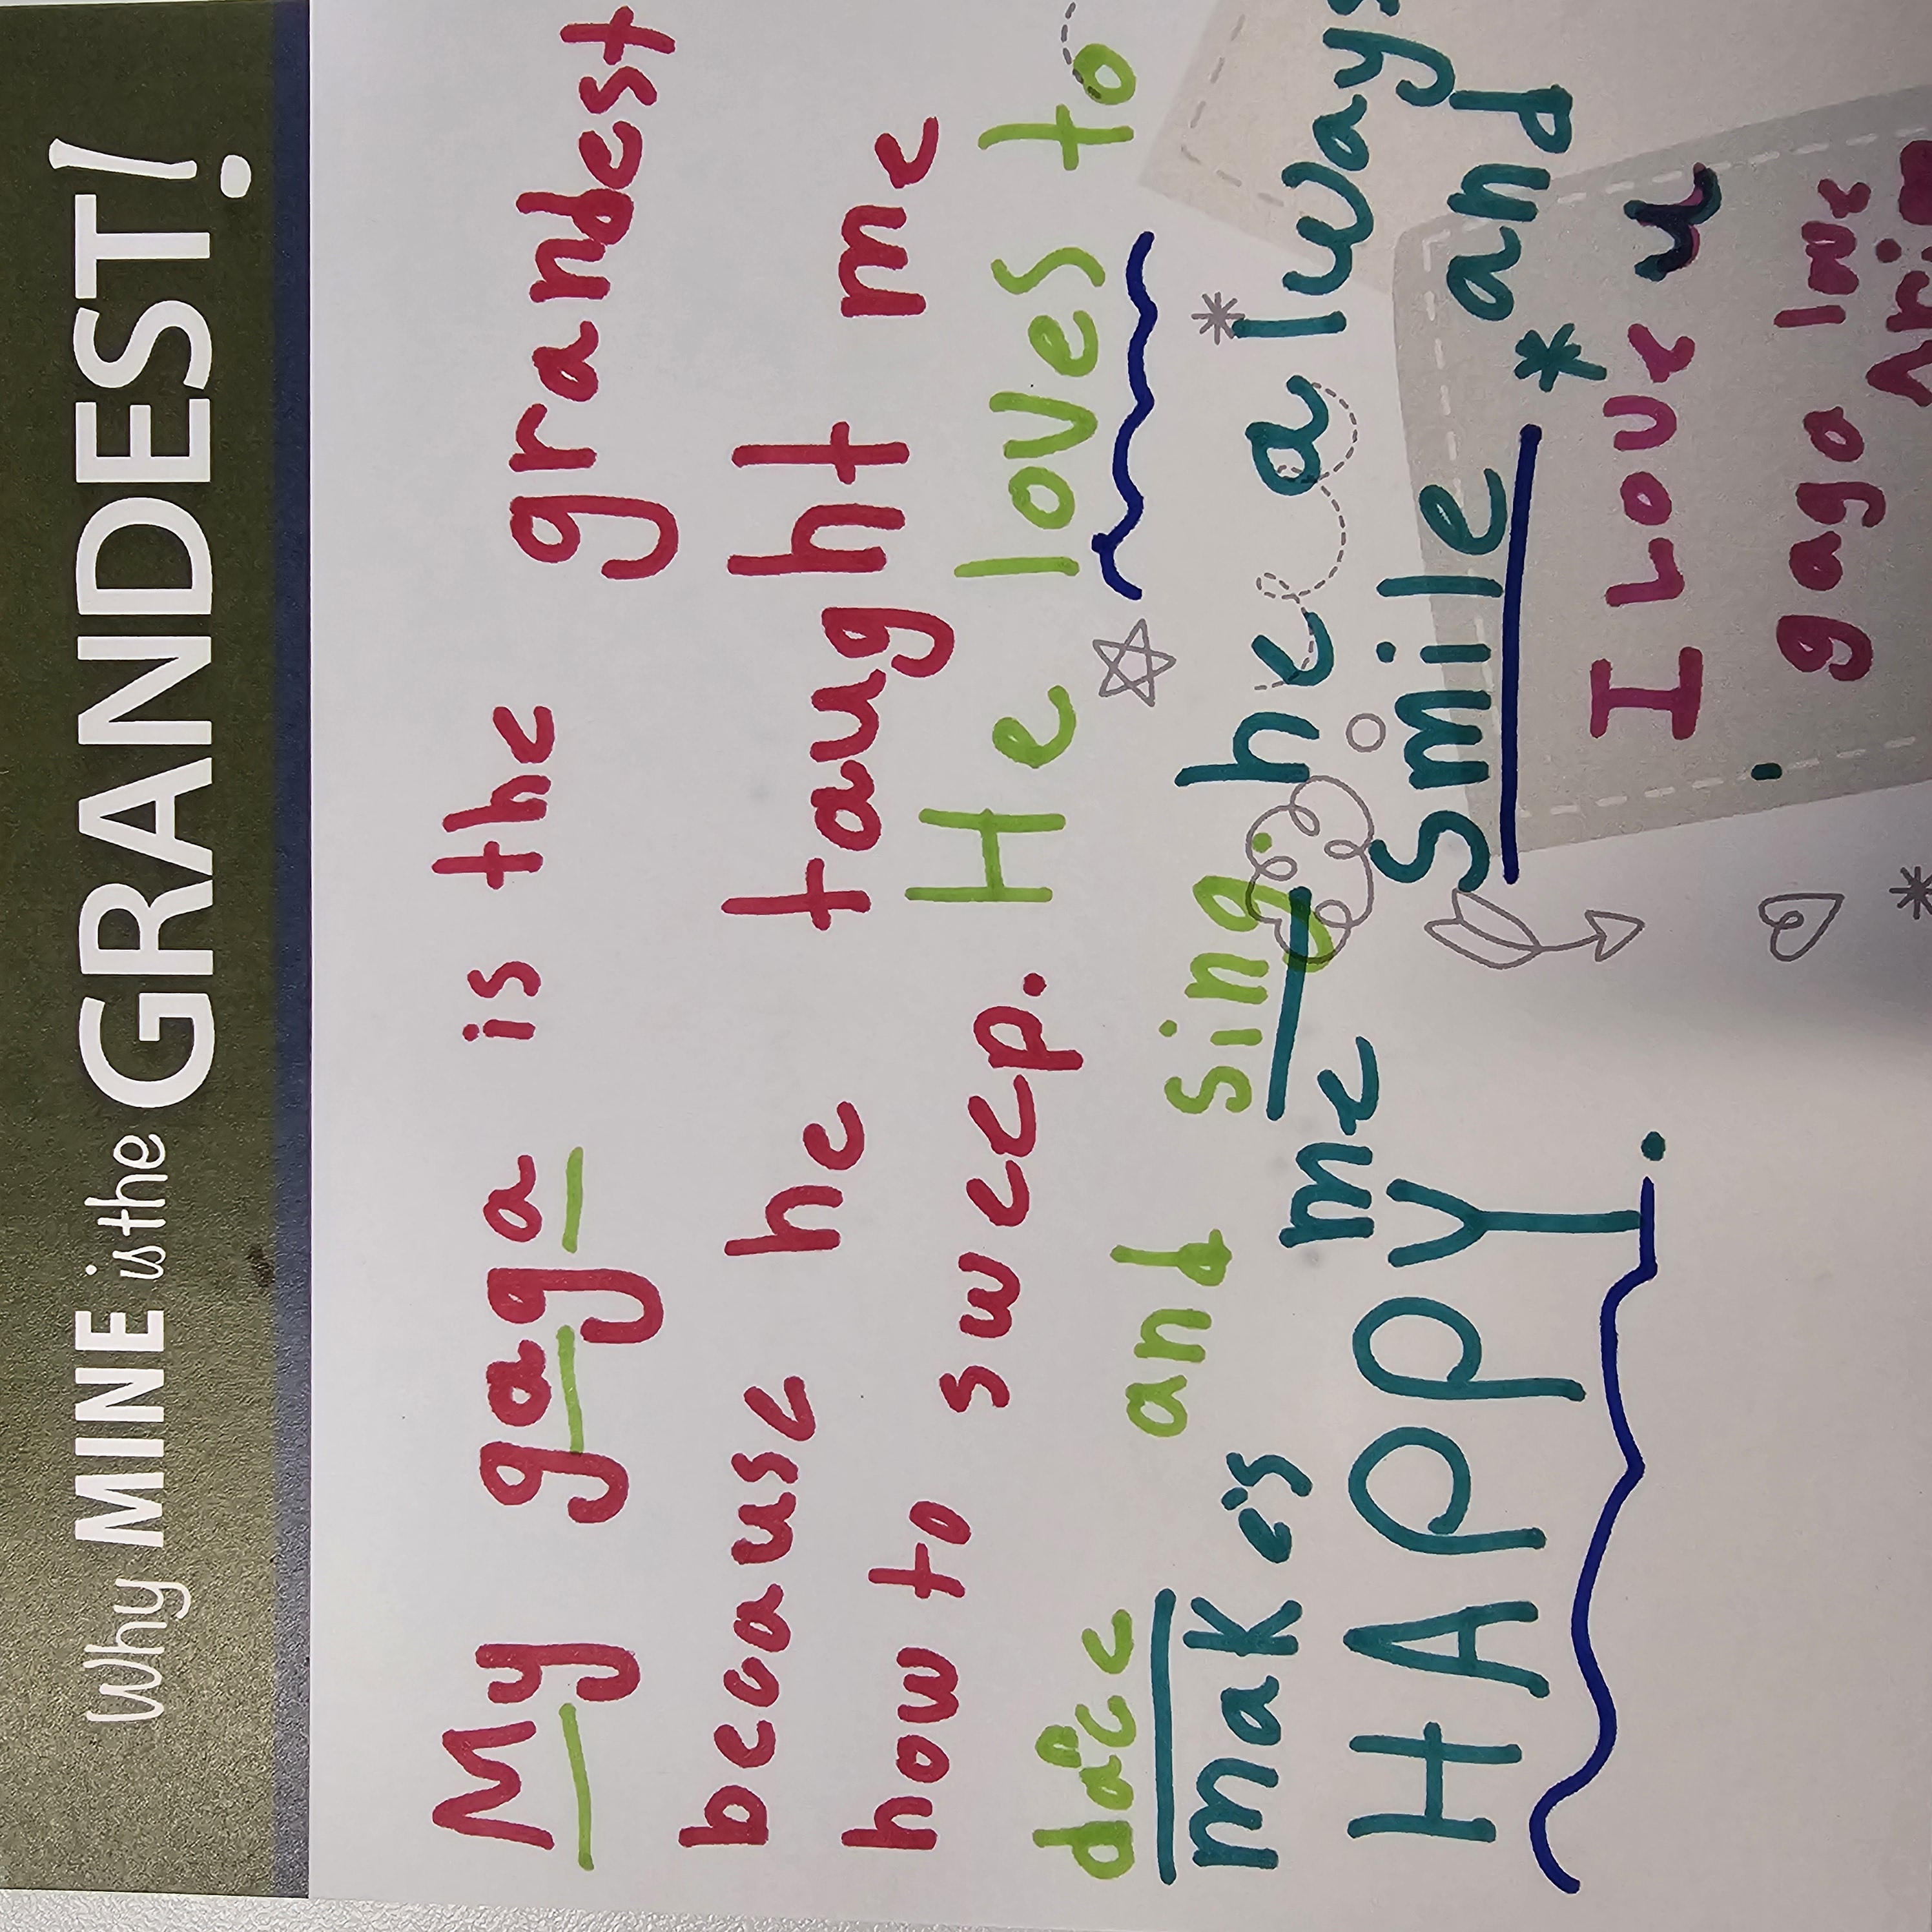 Why MINE is the GRANDEST!
My gaga is the grandest
because he taught me
how to sweep. He loves to
dance and sing. he always
makes me smile * and
HAPPY.
I Love u
gaga love